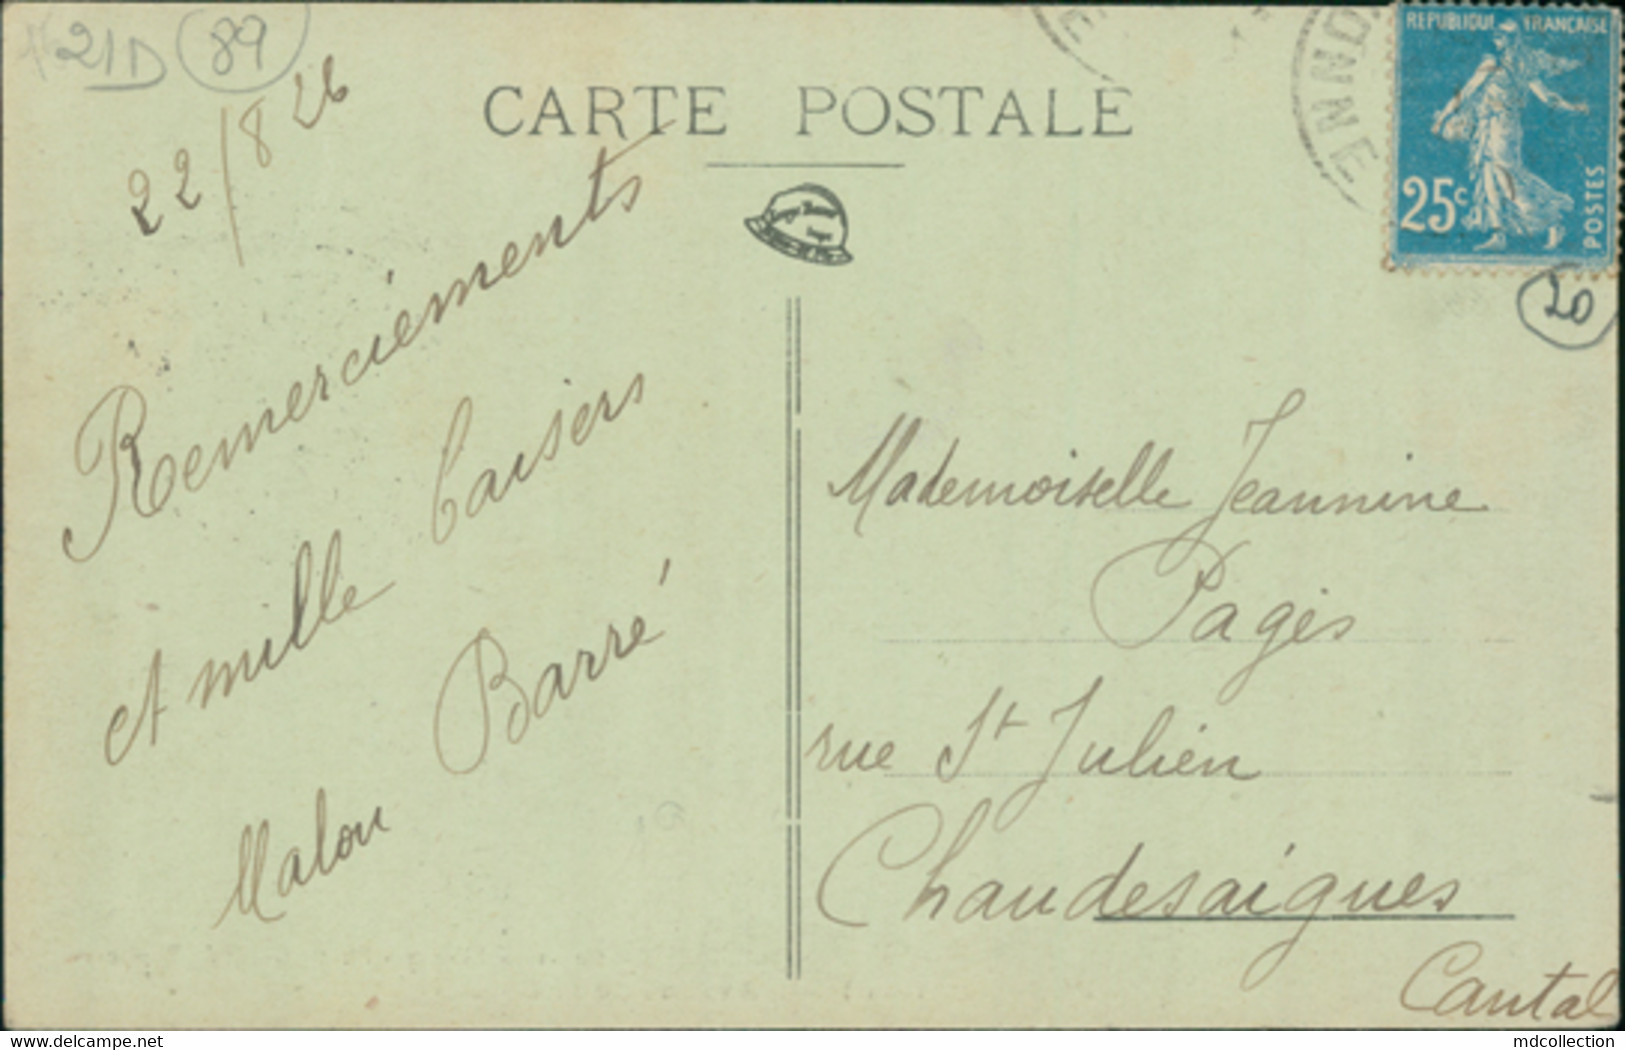 21D 89
22/8 26
CARTE POSTALE
ENND
E
REPUBLIQUE FRANCAISE
25c
POSTES
20
Remerciements
et mille baisers
Malou Barré
Mademoiselle Jeannine
Pagès
rue St Julien
Chaudesaigues
Cantal
www.delcampe.net
mdcollection